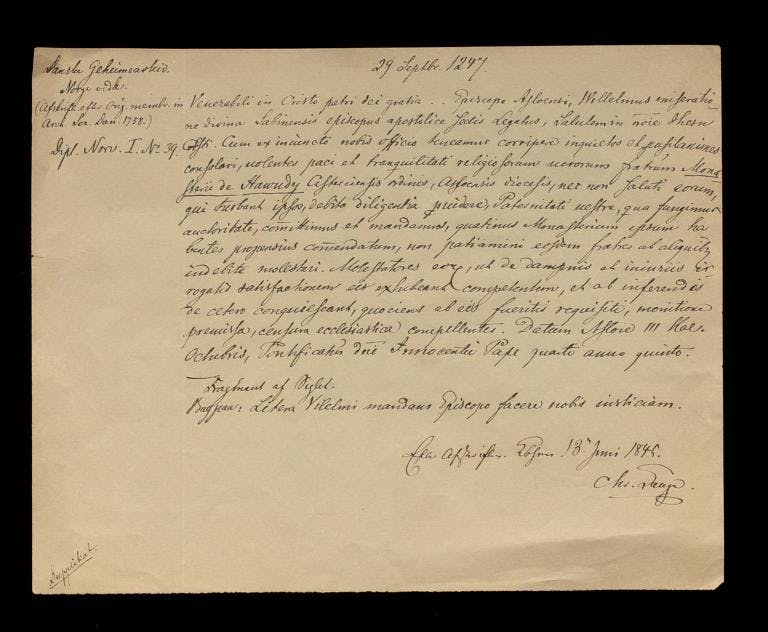 Danske Geheimearchiv.
29 Septbr. 1247.
Norge vedk.
(Afskrift efter Orig. membr. in
Arch. Soc. Dan. 1758.)
Dipl. Norv. I. No. 39.
Venerabili in Cristo patri dei gratia . . Episcopo Asloensi, Willelmus miseratio
ne divina Sabinensis episcopus apostolice Sedis Legatus, Salutem in
Cum ex iniuncto nobis officio teneamur corripere inquietos et pusilanimes
consolari, uolentes paci et tranquilitati religiosorum uirorum fratrum Mona
sterii de Hawudy Cisterciensis ordinis, Asloensis diocesis, nec non saluti eorum,
qui turbant ipsos, debita diligentia prouidere, Paternitati uestre, qua fungimur
auctoritate, comittimus et mandamus, quatinus Monasterium ipsum ha
bentes propensius comendatum, non patiamini eosdem fratres ab aliquibus
indebite molestari. Molestatores ut de dampnis et iniuriis ir
rogatis satisfactionem eis exhibeant competentem, et ab inferendis
de cetero conquiescant, quociens ab eis fueritis requisiti, monitione
premissa, censura ecclesiastica compellentes. Datum Asloie III Kal.
Octubris, Pontificatus dni Innocentii Pape quarti anno quinto.
Fragment af Siglet.
Litera Vilelmi mandans Episcopo facere nobis iusticiam.
13 Juni 1845.
Chr. Lange.
Dupplikat.